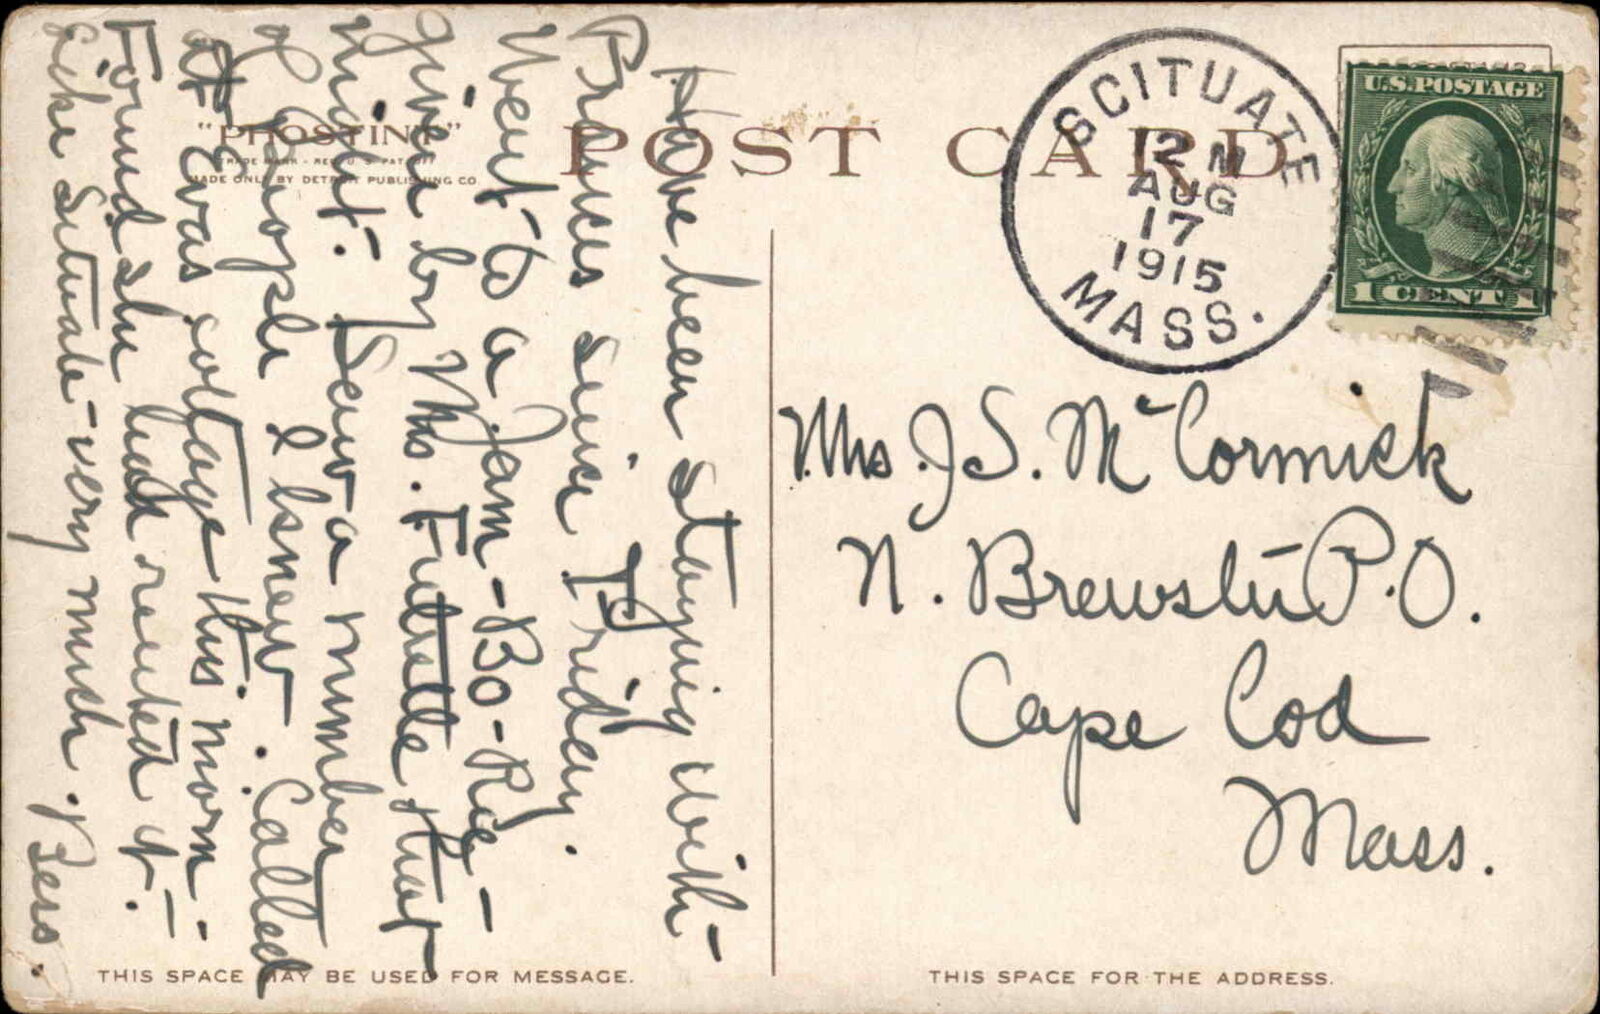 "PHOSTINT"
TRADE MARK - REG. U. S. PAT. OFF.
MADE ONLY BY DETROIT PUBLISHING CO.
POST CARD
SCITUATE
12 M
AUG
17
1915
MASS.
U.S. POSTAGE
1 CENT 1
Have been staying with
Frances since Friday.
Went to a Jam-Bo-Ree
give by Mrs. Futrelle that
night. Saw a number
of people I knew. Called
at Evas cottage this morn.
Found she had rented it.
Like Situate very much. Bess.
Mrs. J. S. McCormick
N. Brewster P.O.
Cape Cod
Mass.
THIS SPACE MAY BE USED FOR MESSAGE.
THIS SPACE FOR THE ADDRESS.